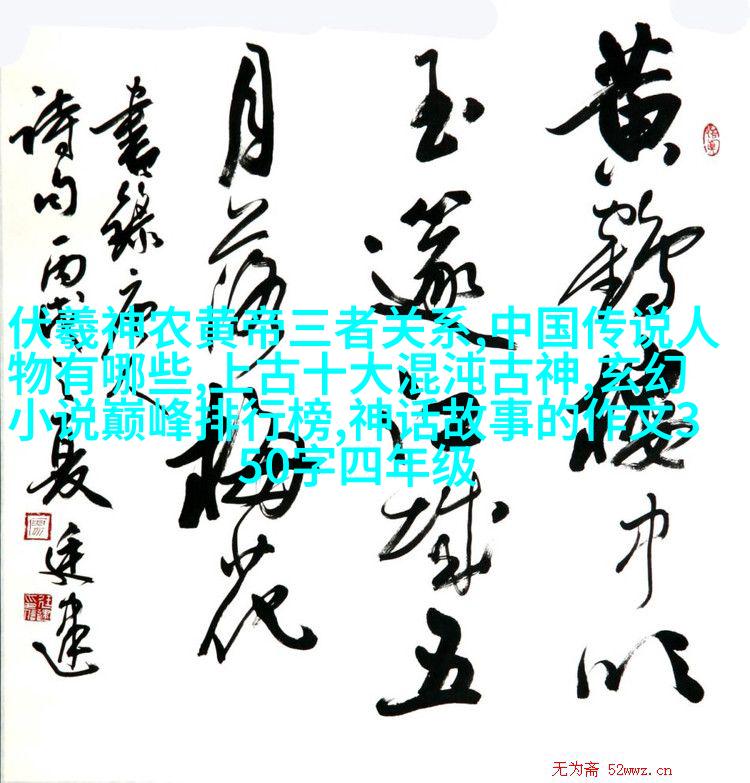 黄鶴樓中吹
玉篴江城五
月落梅花
書錄唐人
詩句丙戌之夏廷建
伏羲神农黄帝三者关系,中国传说人
物有哪些,上古十大混沌古神,玄幻
小说巅峰排行榜,神话故事的作文3
50字四年级
无为斋 52wwz.cn